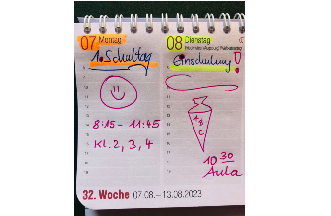 07 Montag
1. Schultag
8:15 - 11:45
Kl. 2, 3, 4
08 Dienstag
Einschulung!
A B C
10 30
Aula
32. Woche 07.08. – 13.08.2023